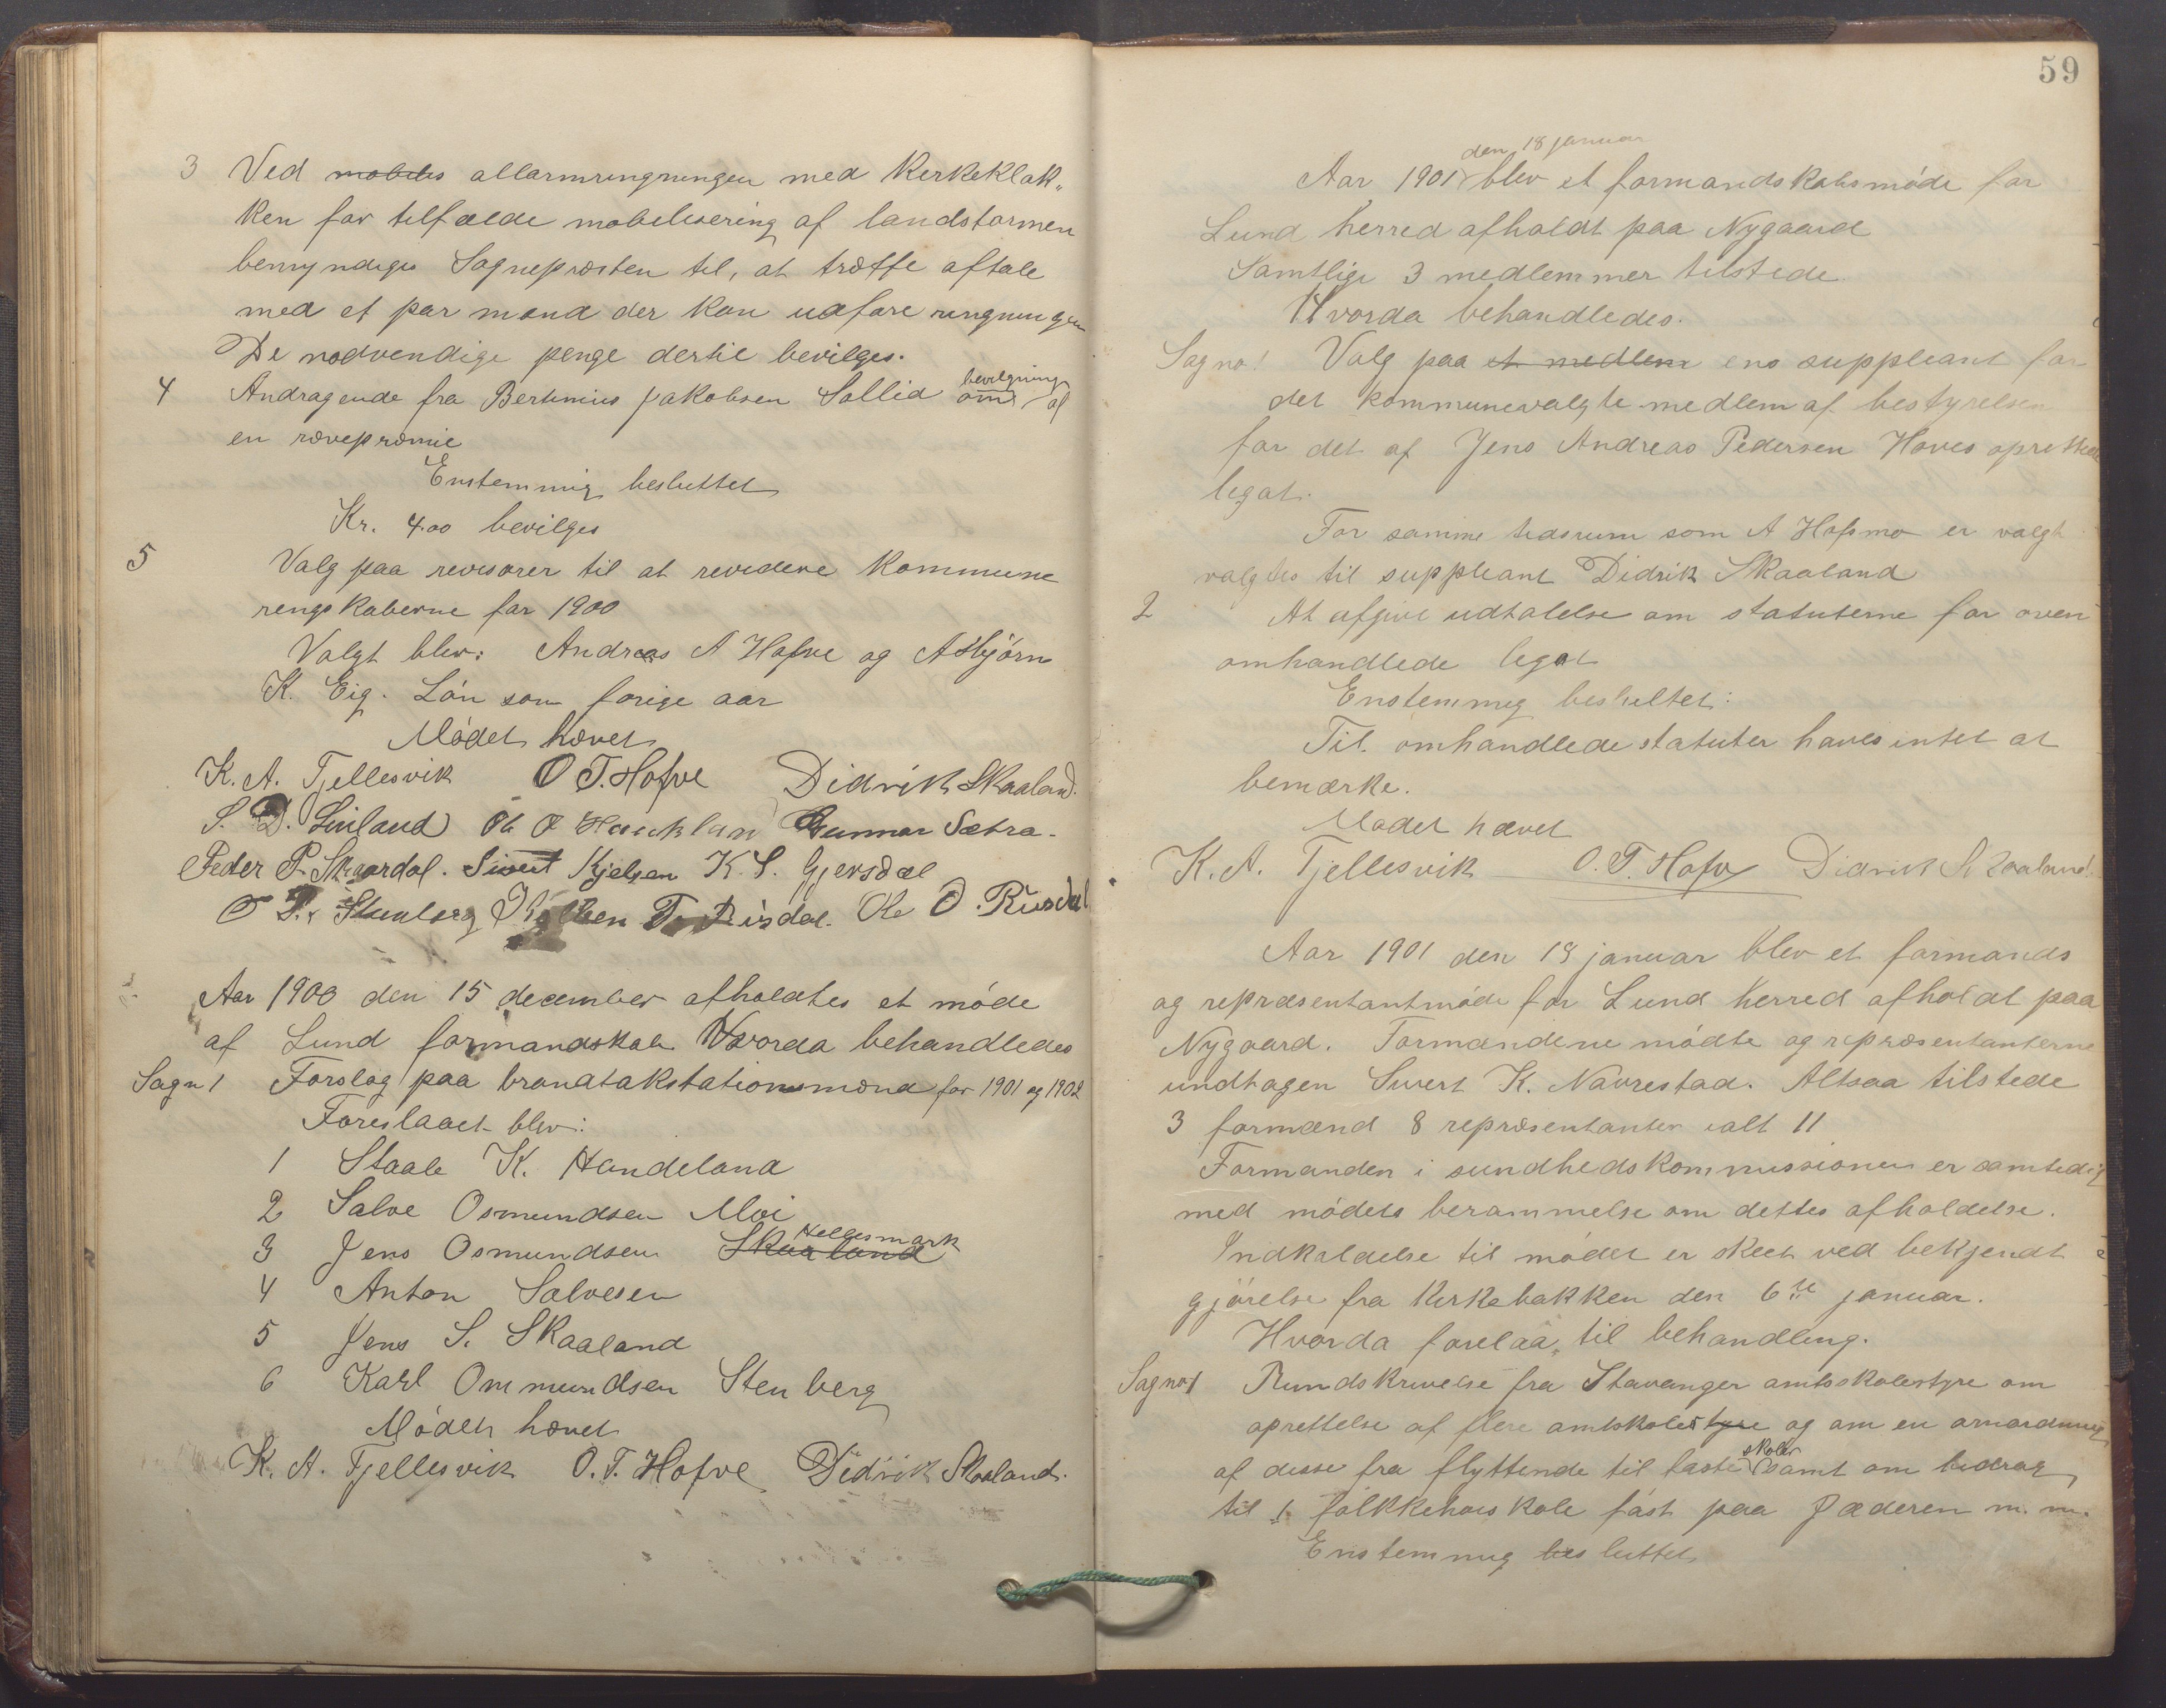 3 Ved mobilis allarmringningen med Kerkeklok„
ken for tilfælde mobilisering af landstormen
bemyndiges Sognepræsten til, at træffe aftale
med et par mænd der kan udføre ringningen
De nødvendige penge dertil bevilges.
4 Andragende fra Bertinius Jakobsen Sollid om bevilgning af
en rævepræmie
Enstemmig besluttet
Kr. 4.00 bevilges
5 Valg paa revisorer til at revidere Kommune
rengskaberne for 1900
Valgt blev: Andreas A Hofve og Asbjørn
K. Eig. Løn som forige aar
Mødet hævet
K. A. Fjellesvik O T. Hofve Didrik Skaaland.
S. D. Linland Ole O Haukland Gunnar Sætra.
Peder P. Skaardal. Sivert Kjelsen K. S. Gjersdal
O P. Stenberg T. Risdal. Ole O. Rusdal
Aar 1900 den 15 december afholdtes et møde
af Lund formandskab Hvorda behandledes
Sagn 1 Forslag paa brandtakstationsmænd for 1901 og 1902
Foreslaaet blev:
1 Staale K. Handeland
2 Salve Osmundsen Moi
3 Jens Osmundsen Skaaland Hellesmark
4 Anton Salvesen
5 Jens S. Skaaland
6 Karl Ommundsen Stenberg
Mødet hævet
K. A. Fjellesvik O. T. Hofve Didrik Skaaland.
59
den 18 januar
Aar 1901 blev et formandskabsmøde for
Lund herred afholdt paa Nygaard
Samtlige 3 medlemmer tilstede
Hvorda behandledes.
Sag no 1 Valg paa et medlem ens suppleant for
det kommunevalgte medlem af bestyrelsen
for det af Jens Andreas Pedersen Hoves oprettede
legat.
For samme tidsrum som A Hofsmo er valgt
valgtes til suppleant Didrik Skaaland
2 At afgive udtalelse om statuterne for oven
omhandlede legat
Enstemmig besluttet:
Til omhandlede statuter haves intet at
bemærke.
Mødet hævet
K. A. Fjellesvik O. T. Hofve Didrik Skaaland.
Aar 1901 den 18 januar blev et formands
og repræsentantmøde for Lund herred afholdt paa
Nygaard. Formændene mødte og repræsentanterne
undtagen Sivert K. Navrestad. Altsaa tilstede
3 formænd 8 repræsentanter ialt 11
Formanden i sundhedskommissionen er samtedig
med mødets berammelse om dettes afholdelse.
Indkaldelse til mødet er skeet ved bekjendt
gjørelse fra Kirkebakken den 6te januar.
Hvorda forelaa til behandling.
Sag no 1 Rundskrivelse fra Stavanger amtsskolestyre om
oprettelse af flere amtskolestyre og om en omordning
af disse fra flyttende til faste skoler samt om bidrag
til 1 folkkehøiskole fast paa Jæderen m. m.
Enstemmig besluttet